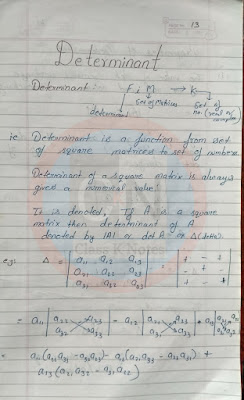 13
Determinant
Determinant : F : M → K
determinant set of matrices set of
no. (real or complex)
ie Determinant is a function from set
of square matrices to set of numbers.
Determinant of a square matrix is always
gives a numerical value.
It is denoted, If A is a square
matrix then determinant of A
denoted by |A| or det A or Δ (delta)
eg: Δ = | a11 a12 a13 | | + - + |
| a21 a22 a23 | | - + - |
| a31 a32 a33 | | + - + |
= a11 | a22 a23 | - a12 | a21 a23 | + a13 | a21 a22 |
| a32 a33 | | a31 a33 | | a31 a32 |
= a11 (a22 a33 - a32 a23) - a12 (a21 a33 - a23 a31) +
a13 (a21 a32 - a31 a22)